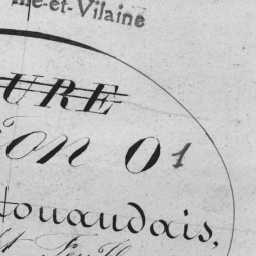 Ille-et-Vilaine
URE
ion 01
Houaudais,